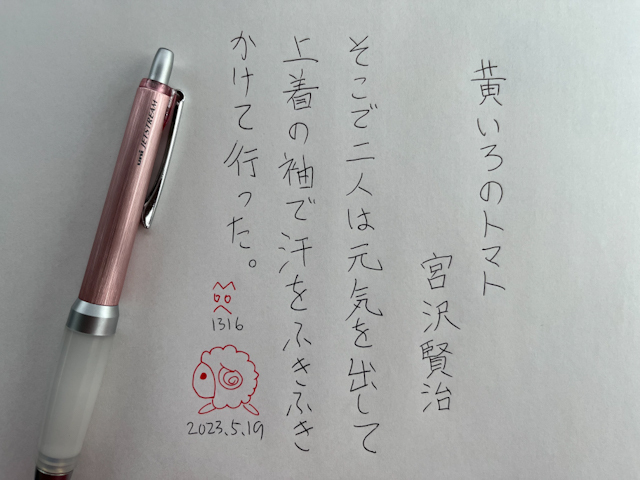 黄いろのトマト
宮沢賢治
そこで二人は元気を出して
上着の袖で汗をふきふき
かけて行った。
1316
2023.5.19
uni JETSTREAM